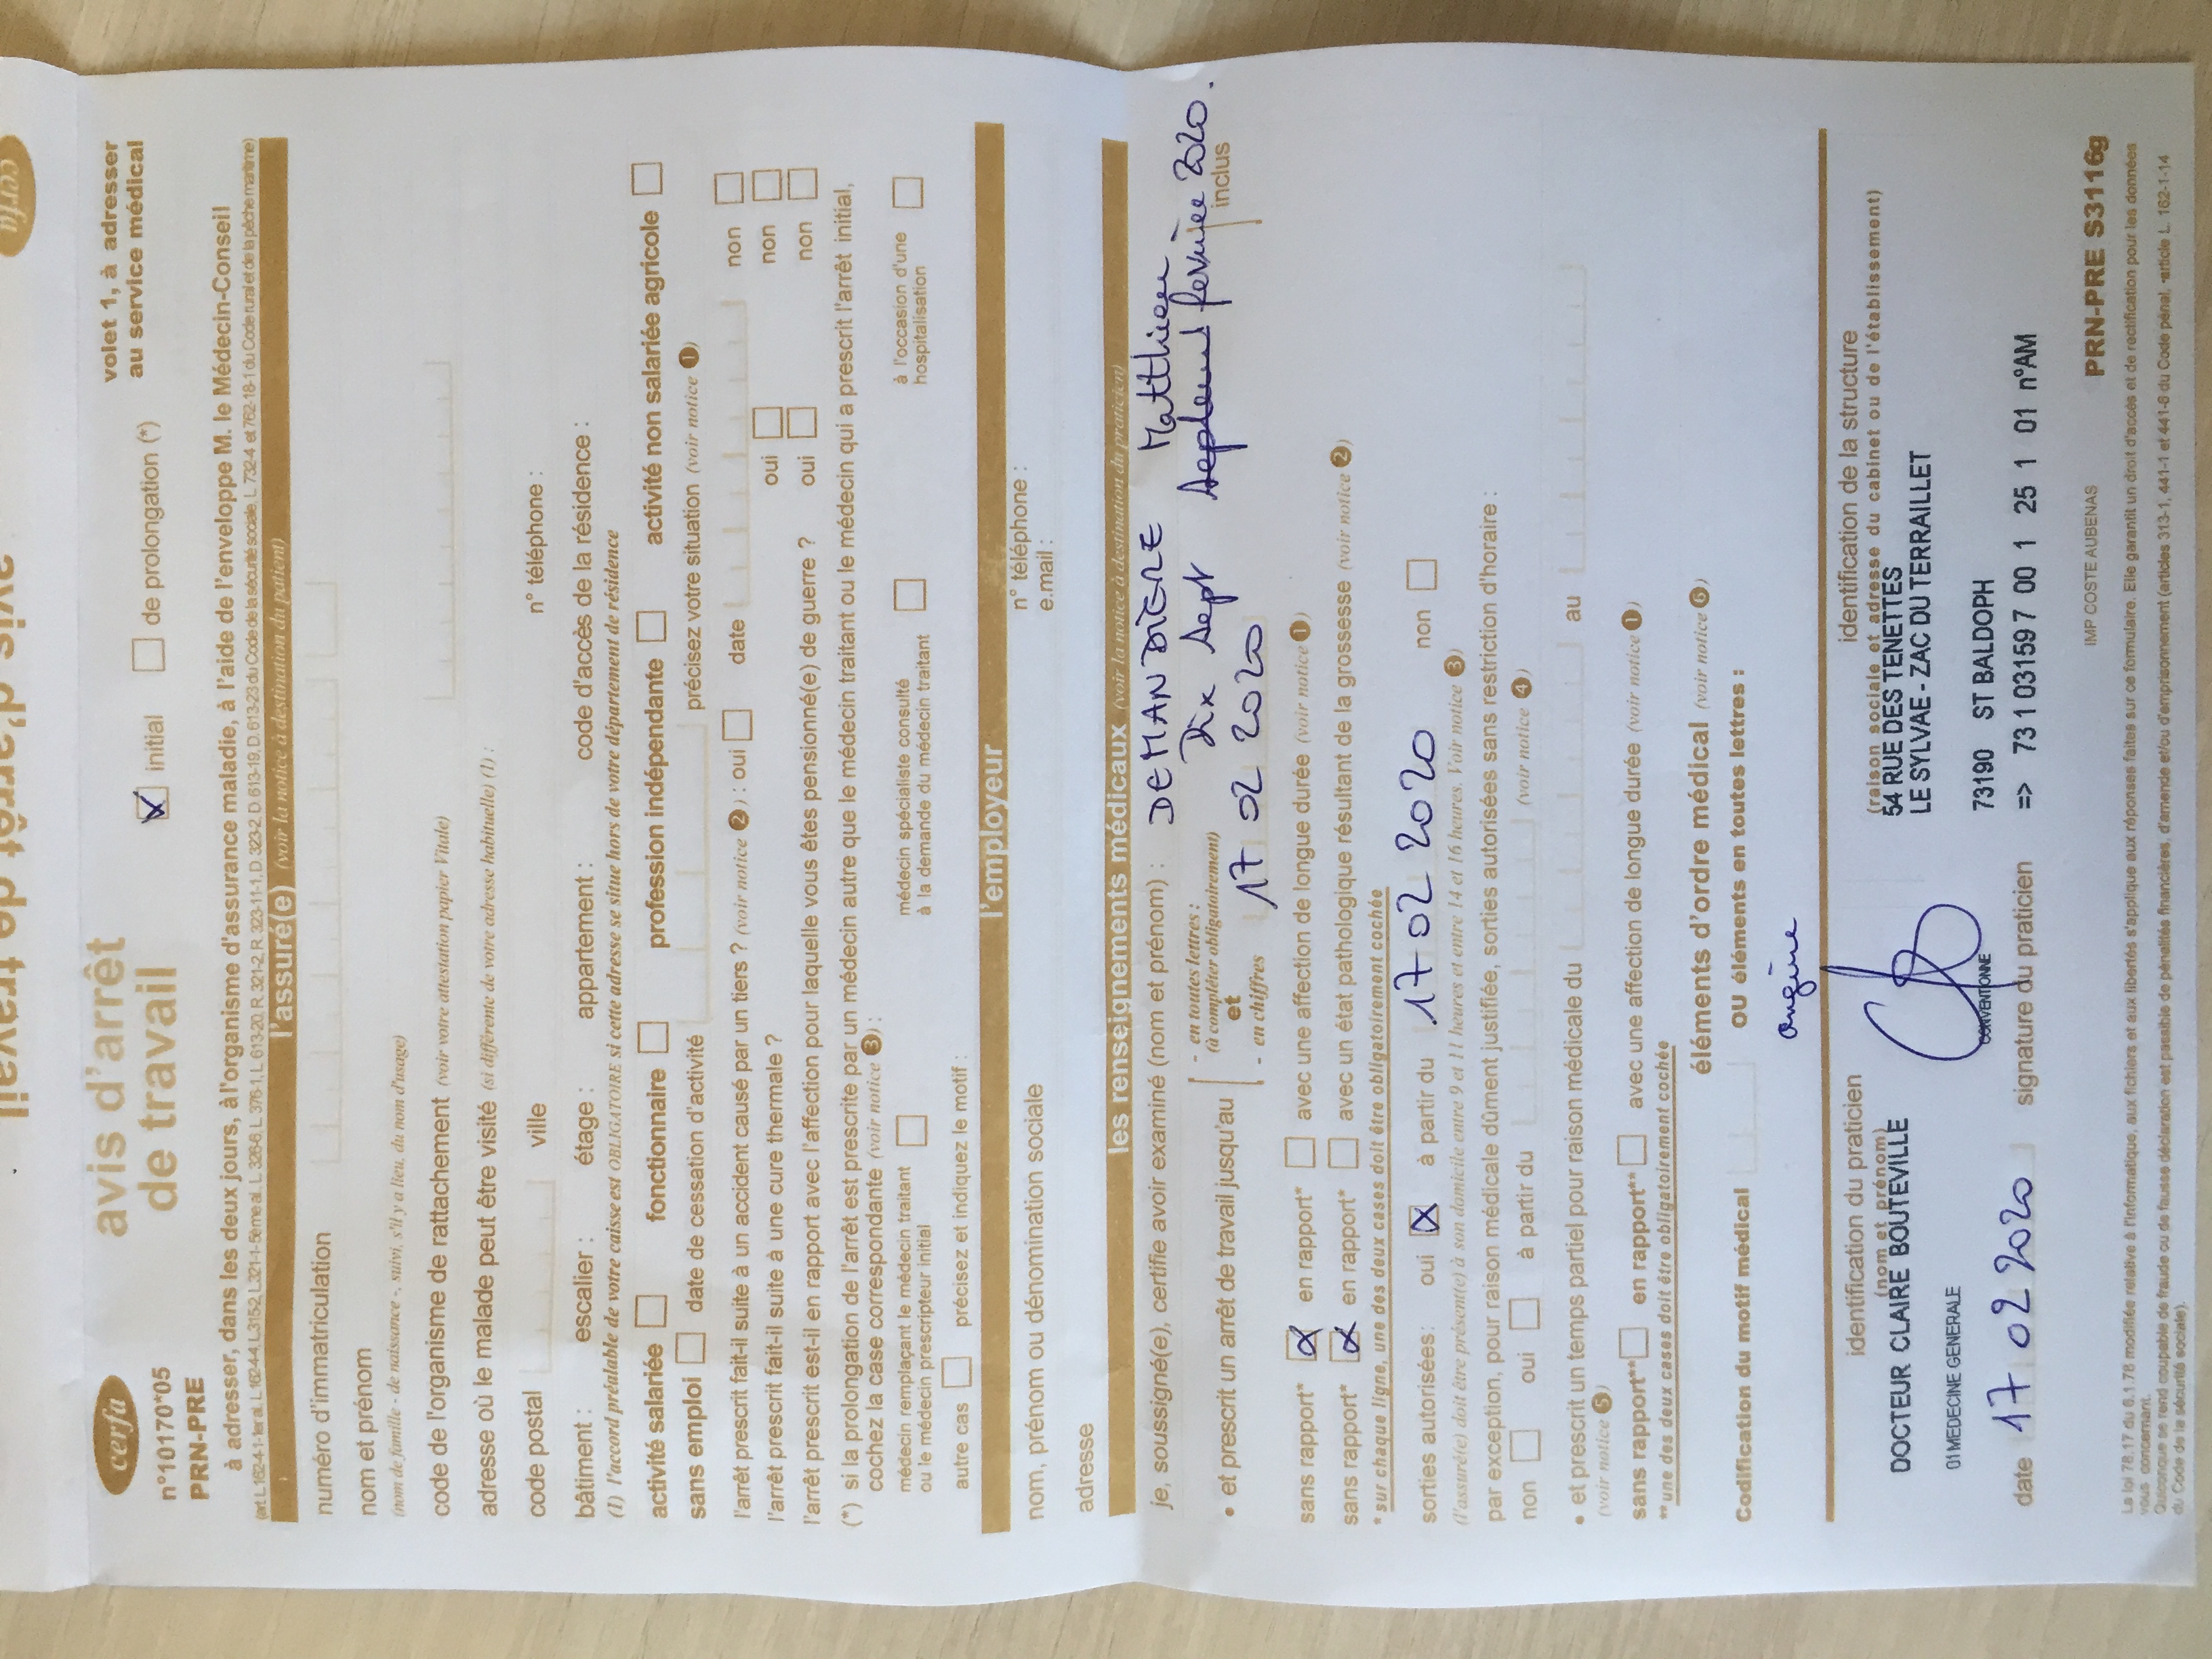 avis d'arrêt de travail
cerfa
cerfa
avis d'arrêt
de travail
initial
de prolongation (*)
volet 1, à adresser
au service médical
n°10170*05
PRN-PRE
à adresser, dans les deux jours, à l'organisme d'assurance maladie, à l'aide de l'enveloppe M. le Médecin-Conseil
(art. L.162-4-1-1er al., L.162-4-4, L.315-2, L.321-1-5ème al., L. 326-6, L. 376-1, L. 613-20, R. 321-2, R. 323-11-1, D. 323-2, D. 613-19, D. 613-23 du Code de la sécurité sociale, L. 732-4 et 762-18-1 du Code rural et de la pêche maritime)
l'assuré(e) (voir la notice à destination du patient)
numéro d'immatriculation
nom et prénom
(nom de famille - de naissance -, suivi, s'il y a lieu, du nom d'usage)
code de l'organisme de rattachement (voir votre attestation papier Vitale)
adresse où le malade peut être visité (si différente de votre adresse habituelle) (1) :
code postal ville n° téléphone :
bâtiment : escalier : étage : appartement : code d'accès de la résidence :
(1) l'accord préalable de votre caisse est OBLIGATOIRE si cette adresse se situe hors de votre département de résidence
activité salariée fonctionnaire profession indépendante activité non salariée agricole
sans emploi date de cessation d'activité précisez votre situation (voir notice 1)
l'arrêt prescrit fait-il suite à un accident causé par un tiers ? (voir notice 2) : oui date non
l'arrêt prescrit fait-il suite à une cure thermale ? oui non
l'arrêt prescrit est-il en rapport avec l'affection pour laquelle vous êtes pensionné(e) de guerre ? oui non
(*) si la prolongation de l'arrêt est prescrite par un médecin autre que le médecin traitant ou le médecin qui a prescrit l'arrêt initial,
cochez la case correspondante (voir notice 3) :
médecin remplaçant le médecin traitant
ou le médecin prescripteur initial
médecin spécialiste consulté
à la demande du médecin traitant
à l'occasion d'une
hospitalisation
autre cas précisez et indiquez le motif :
l'employeur
nom, prénom ou dénomination sociale
n° téléphone :
e.mail :
adresse
les renseignements médicaux (voir la notice à destination du praticien)
je, soussigné(e), certifie avoir examiné (nom et prénom) : DEMANDIÈRE Matthieu
• et prescrit un arrêt de travail jusqu'au
- en toutes lettres :
(à compléter obligatoirement)
Dix Sept février 2020.
inclus
et
- en chiffres 17 02 2020
sans rapport* en rapport* avec une affection de longue durée (voir notice 1)
sans rapport* en rapport* avec un état pathologique résultant de la grossesse (voir notice 2)
* sur chaque ligne, une des deux cases doit être obligatoirement cochée
sorties autorisées: oui à partir du 17 02 2020 non
(l'assuré(e) doit être présent(e) à son domicile entre 9 et 11 heures et entre 14 et 16 heures. Voir notice 3)
par exception, pour raison médicale dûment justifiée, sorties autorisées sans restriction d'horaire :
non oui à partir du (voir notice 4)
• et prescrit un temps partiel pour raison médicale du au
(voir notice 5)
sans rapport** en rapport** avec une affection de longue durée (voir notice 1)
** une des deux cases doit être obligatoirement cochée
éléments d'ordre médical (voir notice 6)
Codification du motif médical OU éléments en toutes lettres :
angine
identification du praticien
(nom et prénom)
DOCTEUR CLAIRE BOUTEVILLE
01 MEDECINE GENERALE
CONVENTIONNE
date 17 02 2020 signature du praticien
identification de la structure
(raison sociale et adresse du cabinet ou de l'établissement)
54 RUE DES TENETTES
LE SYLVAE - ZAC DU TERRAILLET
73190 ST BALDOPH
=> 73 1 03159 7 00 1 25 1 01 n°AM
IMP COSTE AUBENAS
PRN-PRE S3116g
La loi 78.17 du 6.1.78 modifiée relative à l'informatique, aux fichiers et aux libertés s'applique aux réponses faites sur ce formulaire. Elle garantit un droit d'accès et de rectification pour les données
vous concernant.
Quiconque se rend coupable de fraude ou de fausse déclaration est passible de pénalités financières, d'amende et/ou d'emprisonnement (articles 313-1, 441-1 et 441-6 du Code pénal, article L. 162-1-14
du Code de la sécurité sociale).